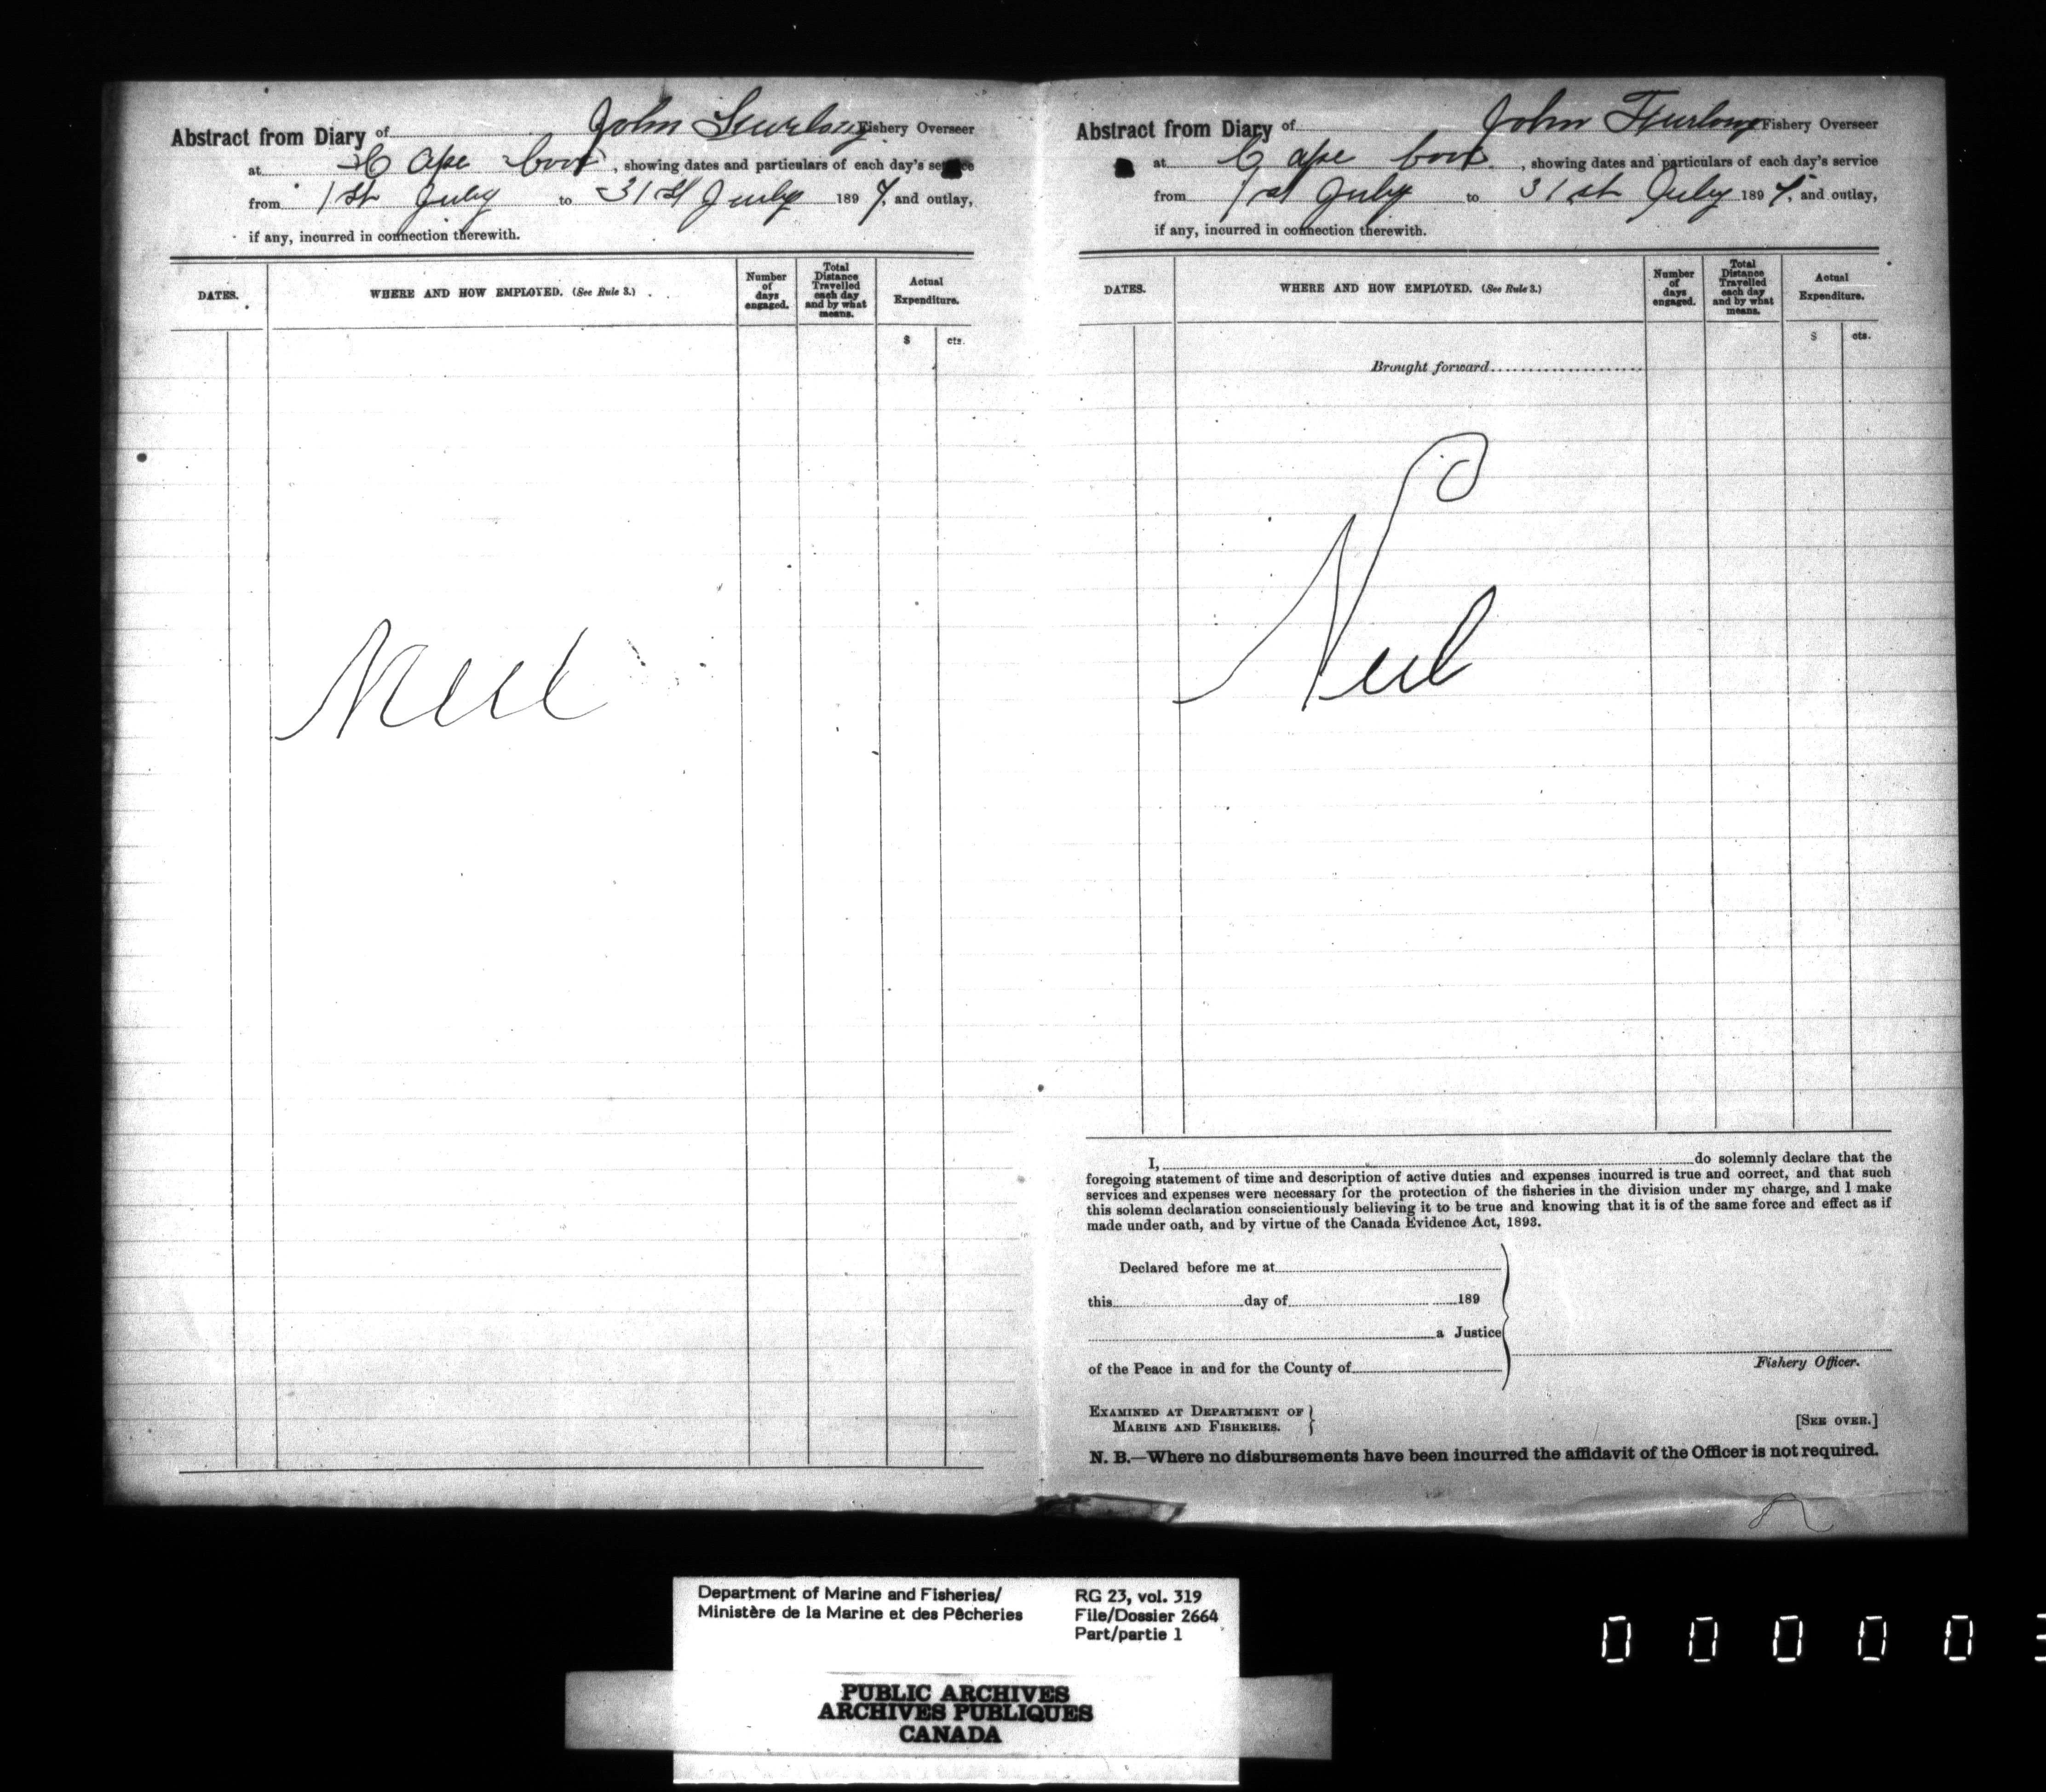 Abstract from Diary of John Furlong Fishery Overseer
at Cape Cove, showing dates and particulars of each day's service
from 1st July to 31st July 1897, and outlay,
if any, incurred in connection therewith.
DATES. WHERE AND HOW EMPLOYED. (See Rule 3.) Number of days engaged. Total Distance Travelled each day and by what means. Actual Expenditure.
$ cts.
Neil
Abstract from Diary of John Furlong Fishery Overseer
at Cape Cove, showing dates and particulars of each day's service
from 1st July to 31st July 1897, and outlay,
if any, incurred in connection therewith.
DATES. WHERE AND HOW EMPLOYED. (See Rule 3.) Number of days engaged. Total Distance Travelled each day and by what means. Actual Expenditure.
$ cts.
Brought forward
Neil
I, do solemnly declare that the
foregoing statement of time and description of active duties and expenses incurred is true and correct, and that such
services and expenses were necessary for the protection of the fisheries in the division under my charge, and I make
this solemn declaration conscientiously believing it to be true and knowing that it is of the same force and effect as if
made under oath, and by virtue of the Canada Evidence Act, 1893.
Declared before me at
this day of 189
a Justice
of the Peace in and for the County of
Fishery Officer.
EXAMINED AT DEPARTMENT OF
MARINE AND FISHERIES.
[SEE OVER.]
N. B.—Where no disbursements have been incurred the affidavit of the Officer is not required.
Department of Marine and Fisheries/
Ministère de la Marine et des Pêcheries
RG 23, vol. 319
File/Dossier 2664
Part/partie 1
PUBLIC ARCHIVES
ARCHIVES PUBLIQUES
CANADA
0 0 0 0 0